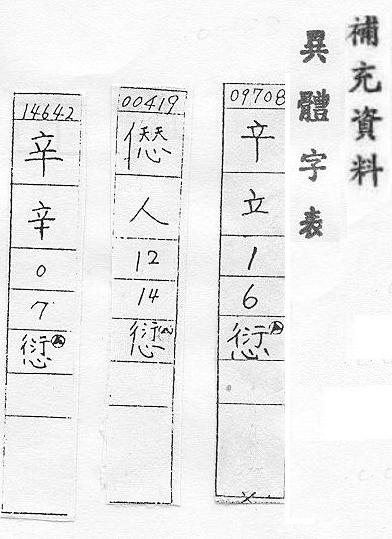 補充資料
異體字表
09708
䇂
立
1
6
愆
00419
人
12
14
愆
14642
辛
辛
0
7
愆